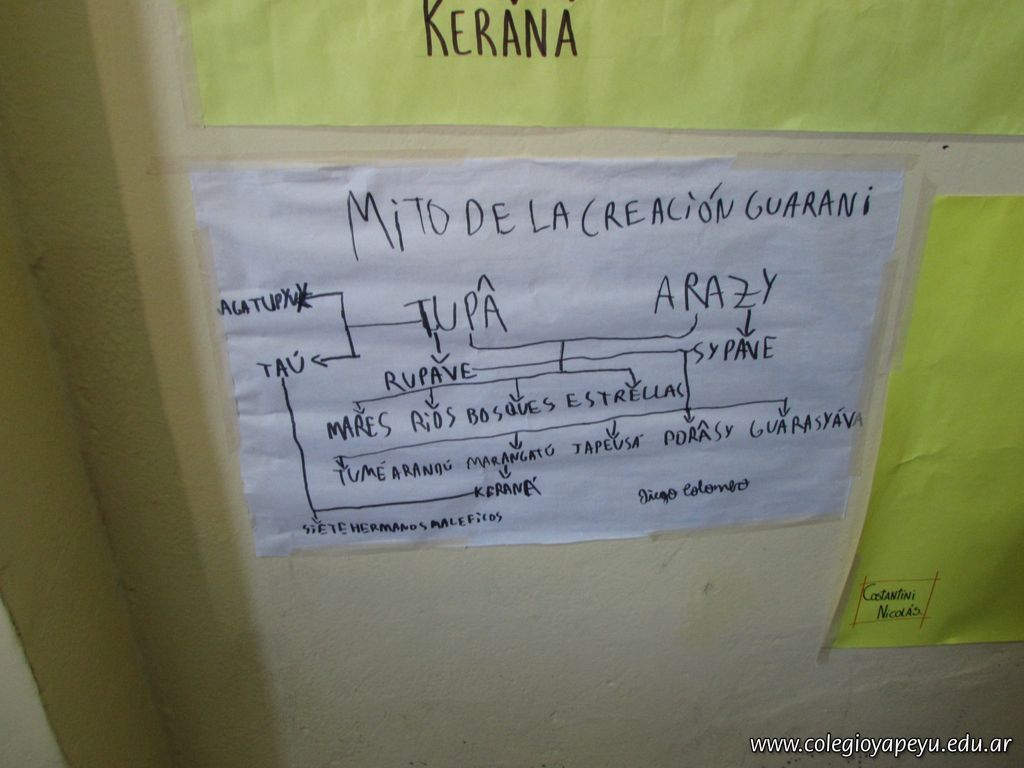 KERÂNÂ
MiTO DE LA CREACIÓN GUARANi
AGATUPYVY
TUPÂ
ARAZY
TAÚ
RUPAVE
SYPAVE
MARES RIOS BOSQUES ESTRELLAS
TUMÉ ARANDÚ MARANGATÚ JAPEUSÁ PORÂSY GUARASYÁVA
KERANÁ
SIETE HERMANOS MALEFICOS
Diego Colombo
COSTANTINI
NICOLÁS.
www.colegioyapeyu.edu.ar